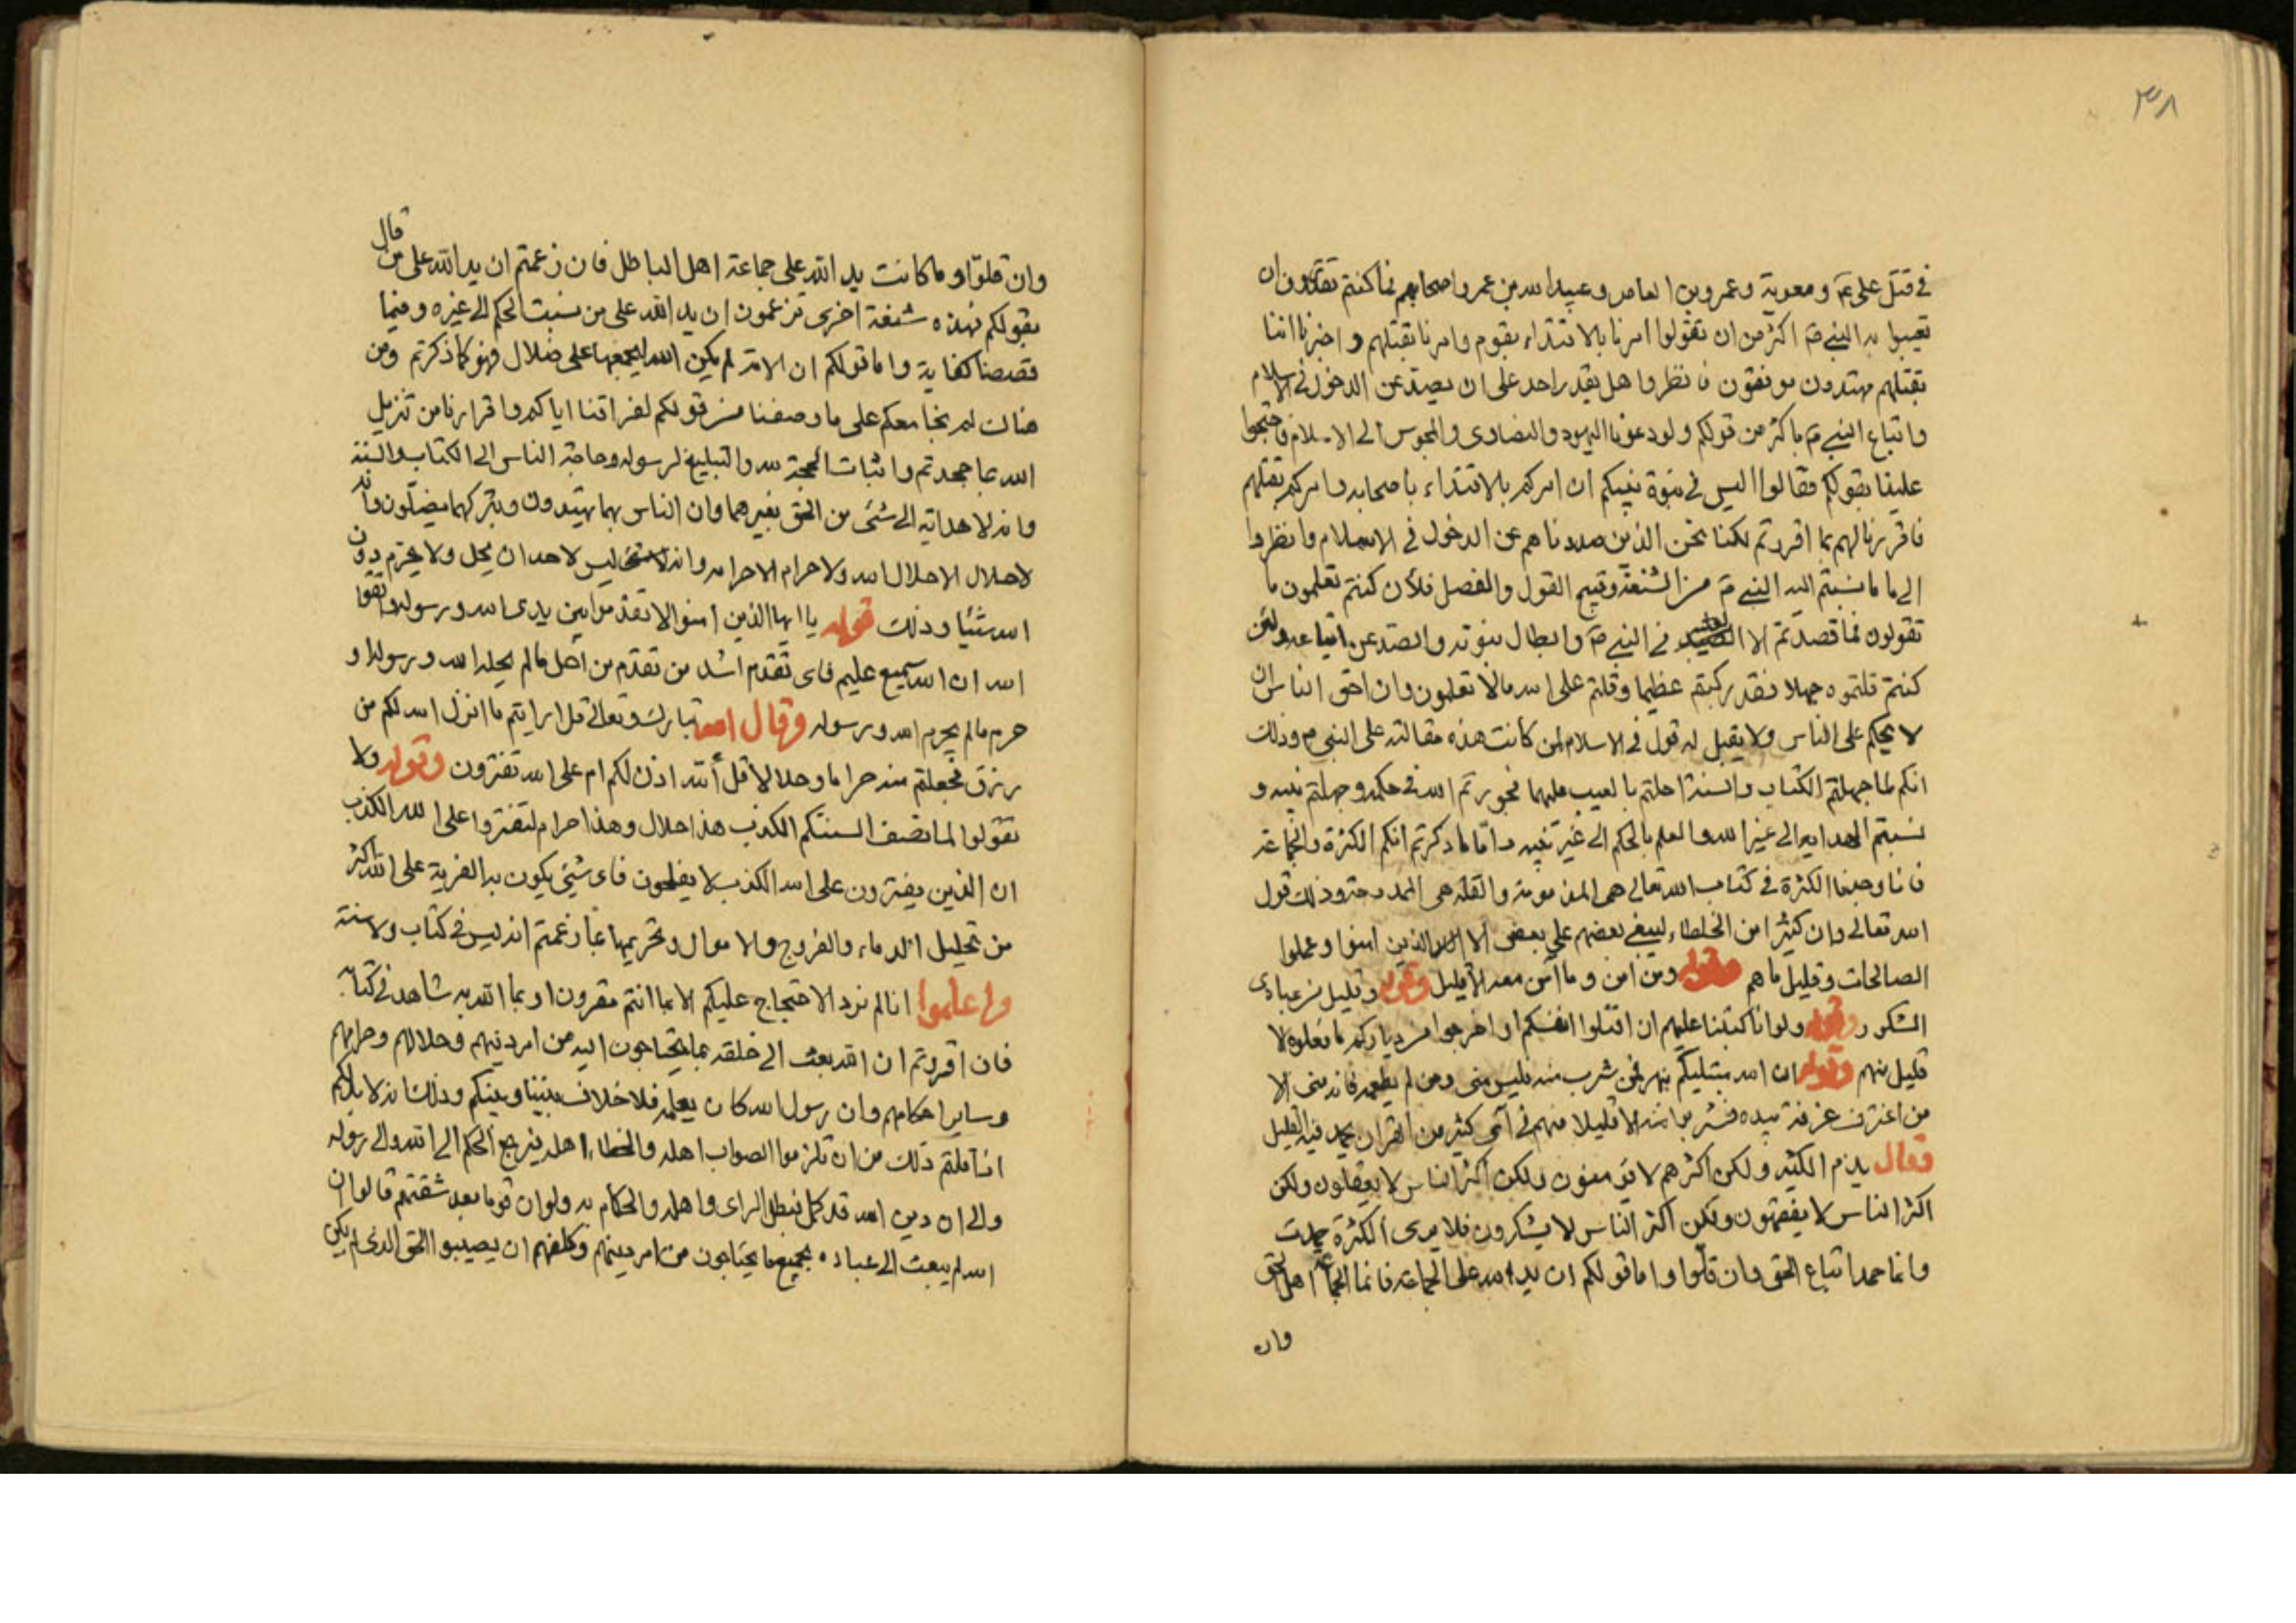 ٣٨
في قتل على ع و معوية و عمرو بن العاص و عبيد الله بن عمر واصحابهم فما كنتم تقدرون ان
تعيبوا به النبي ص اكثر من ان تقولوا امرنا بالاقتداء بقوم وامرنا بقتلهم و اخبرنا اننا
بقتلهم مهتدون موفقون فانظروا هل يقدر احد على ان يصد عن الدخول في الاسلام
واتباع النبي ص باكثر من قولكم ولو دعونا اليهود والنصارى والمجوس الى الاسلام فاحتجوا
علينا بقولكم فقالوا اليس في نبوة نبيكم ان امركم بالاقتداء باصحابه وامركم بقتلهم
فاقررنا لهم بما اقررتم لكنا نحن الذين صددناهم عن الدخول في الاسلام وانظروا
الى ما نسبتم اليه النبي ص من الشنعة وقبيح القول والفصل فلأن كنتم تعلمون ما
تقولون فما قصدتم الا في النبي ص وابطال نبوته والصد عن اتباعه ولئن
كنتم قلتموه جهلا فقد ركبتم عظيما وقلتم على الله مالا تعلمون وان احق الناس ان
لا يحكم على الناس ولا يقبل له قول في الاسلام لمن كانت هذه مقالته على النبي ص وذلك
انكم لما جهلتم الكتاب والسنة احلتم بالعيب عليهما فجورتم الله في حكمه وجهلتم نبيه و
نسبتم الهداية الى غير الله والعلم بالحكم الى غير نبيه واما ما ذكرتم انكم الكثرة والجماعة
فانا وجدنا الكثرة في كتاب الله تعالى هى المذمومة والقلة هى الممدوحة وذلك قول
الله تعالى وان كثيرا من الخلطاء ليبغي بعضهم على بعض الا الذين امنوا وعملوا
الصالحات وقليل ما هم وقوله ومن امن وما آمن معه الا قليل وقوله وقليل من عبادى
الشكور وقوله ولو انا كتبنا عليهم ان اقتلوا انفسكم او اخرجوا من دياركم ما فعلوه الا
قليل منهم وقوله ان الله مبتليكم بنهر فمن شرب منه فليس منى ومن لم يطعمه فانه منى الا
من اغترف غرفة بيده فشربوا منه الا قليلا منهم في آى كثير من القران يحمد فيه القليل
فقال يذم الكثير ولكن اكثرهم لا يؤمنون ولكن اكثر الناس لا يعقلون ولكن
اكثر الناس لا يفقهون ولكن اكثر الناس لا يشكرون فلا يرى الكثرة حمدت
وانما حمد اتباع الحق وان قلوا واما قولكم ان يد الله على الجماعة فانما الجماعة اهل الحق
وان
قال
وان قلوا وما كانت يد الله على جماعة اهل الباطل فان زعمتم ان يد الله على من
بقولكم فهذه شنعة اخرى تزعمون ان يد الله على من نسبت الحكم الى غيره وفيما
قصصنا كفاية واما قولكم ان الامة لم يكن الله ليجمعها على ضلال فهو كما ذكرتم ومن
هناك لم نجامعكم على ما وصفنا من قولكم لفراقنا اياكم واقرارنا من تنزيل
الله بما جحدتم واثبات الحجة لله والتبليغ لرسوله وحاجة الناس الى الكتاب والسنة
وانه لا هداية الى شئ من الحق بغيرهما وان الناس بهما يهتدون وبتركهما يضلون وانه
لا حلال الا حلال الله ولا حرام الا حرامه وانه ليس لاحد ان يحل ولا يحرم دون
الله شيئا وذلك قوله يا ايها الذين امنوا لا تقدموا بين يدى الله ورسوله واتقوا
الله ان الله سميع عليم فاى تقدم اشد من تقدم من احل ما لم يحله الله ورسوله او
حرم ما لم يحرم الله ورسوله وقال الله تبارك وتعالى قل ارايتم ما انزل الله لكم من
رزق فجعلتم منه حراما وحلالا قل أ لله اذن لكم ام على الله تفترون وقوله ولا
تقولوا لما تصف السنتكم الكذب هذا حلال وهذا حرام لتفتروا على الله الكذب
ان الذين يفترون على الله الكذب لا يفلحون فاى شئ يكون به الفرية على الله اكثر
من تحليل الدماء والفروج والاموال وتحريمها مما زعمتم انه ليس في كتاب ولا سنة
واعلموا انا لم نرد الاحتجاج عليكم الا بما انتم مقرون او بما الله به شاهد في كتابه
فان اقررتم ان الله بعث الى خلقه بما يحتاجون اليه من امر دينهم وحلالهم وحرامهم
وساير احكامهم وان رسول الله كان يعلمه فلا خلاف بيننا وبينكم وذلك انه لا يلزمكم
اذا قلتم ذلك من ان تلزموا الصواب اهله والخطاء اهله فيرجع الحكم الى الله والى رسوله
والى ان دين الله قد كمل فبطل الراى واهله والحكام به ولو ان قوما بعد شقتهم قالوا ان
الله لم يبعث الى عباده بجميع ما يحتاجون من امر دينهم وكلفهم ان يصيبوا الحق الذى لم يكن